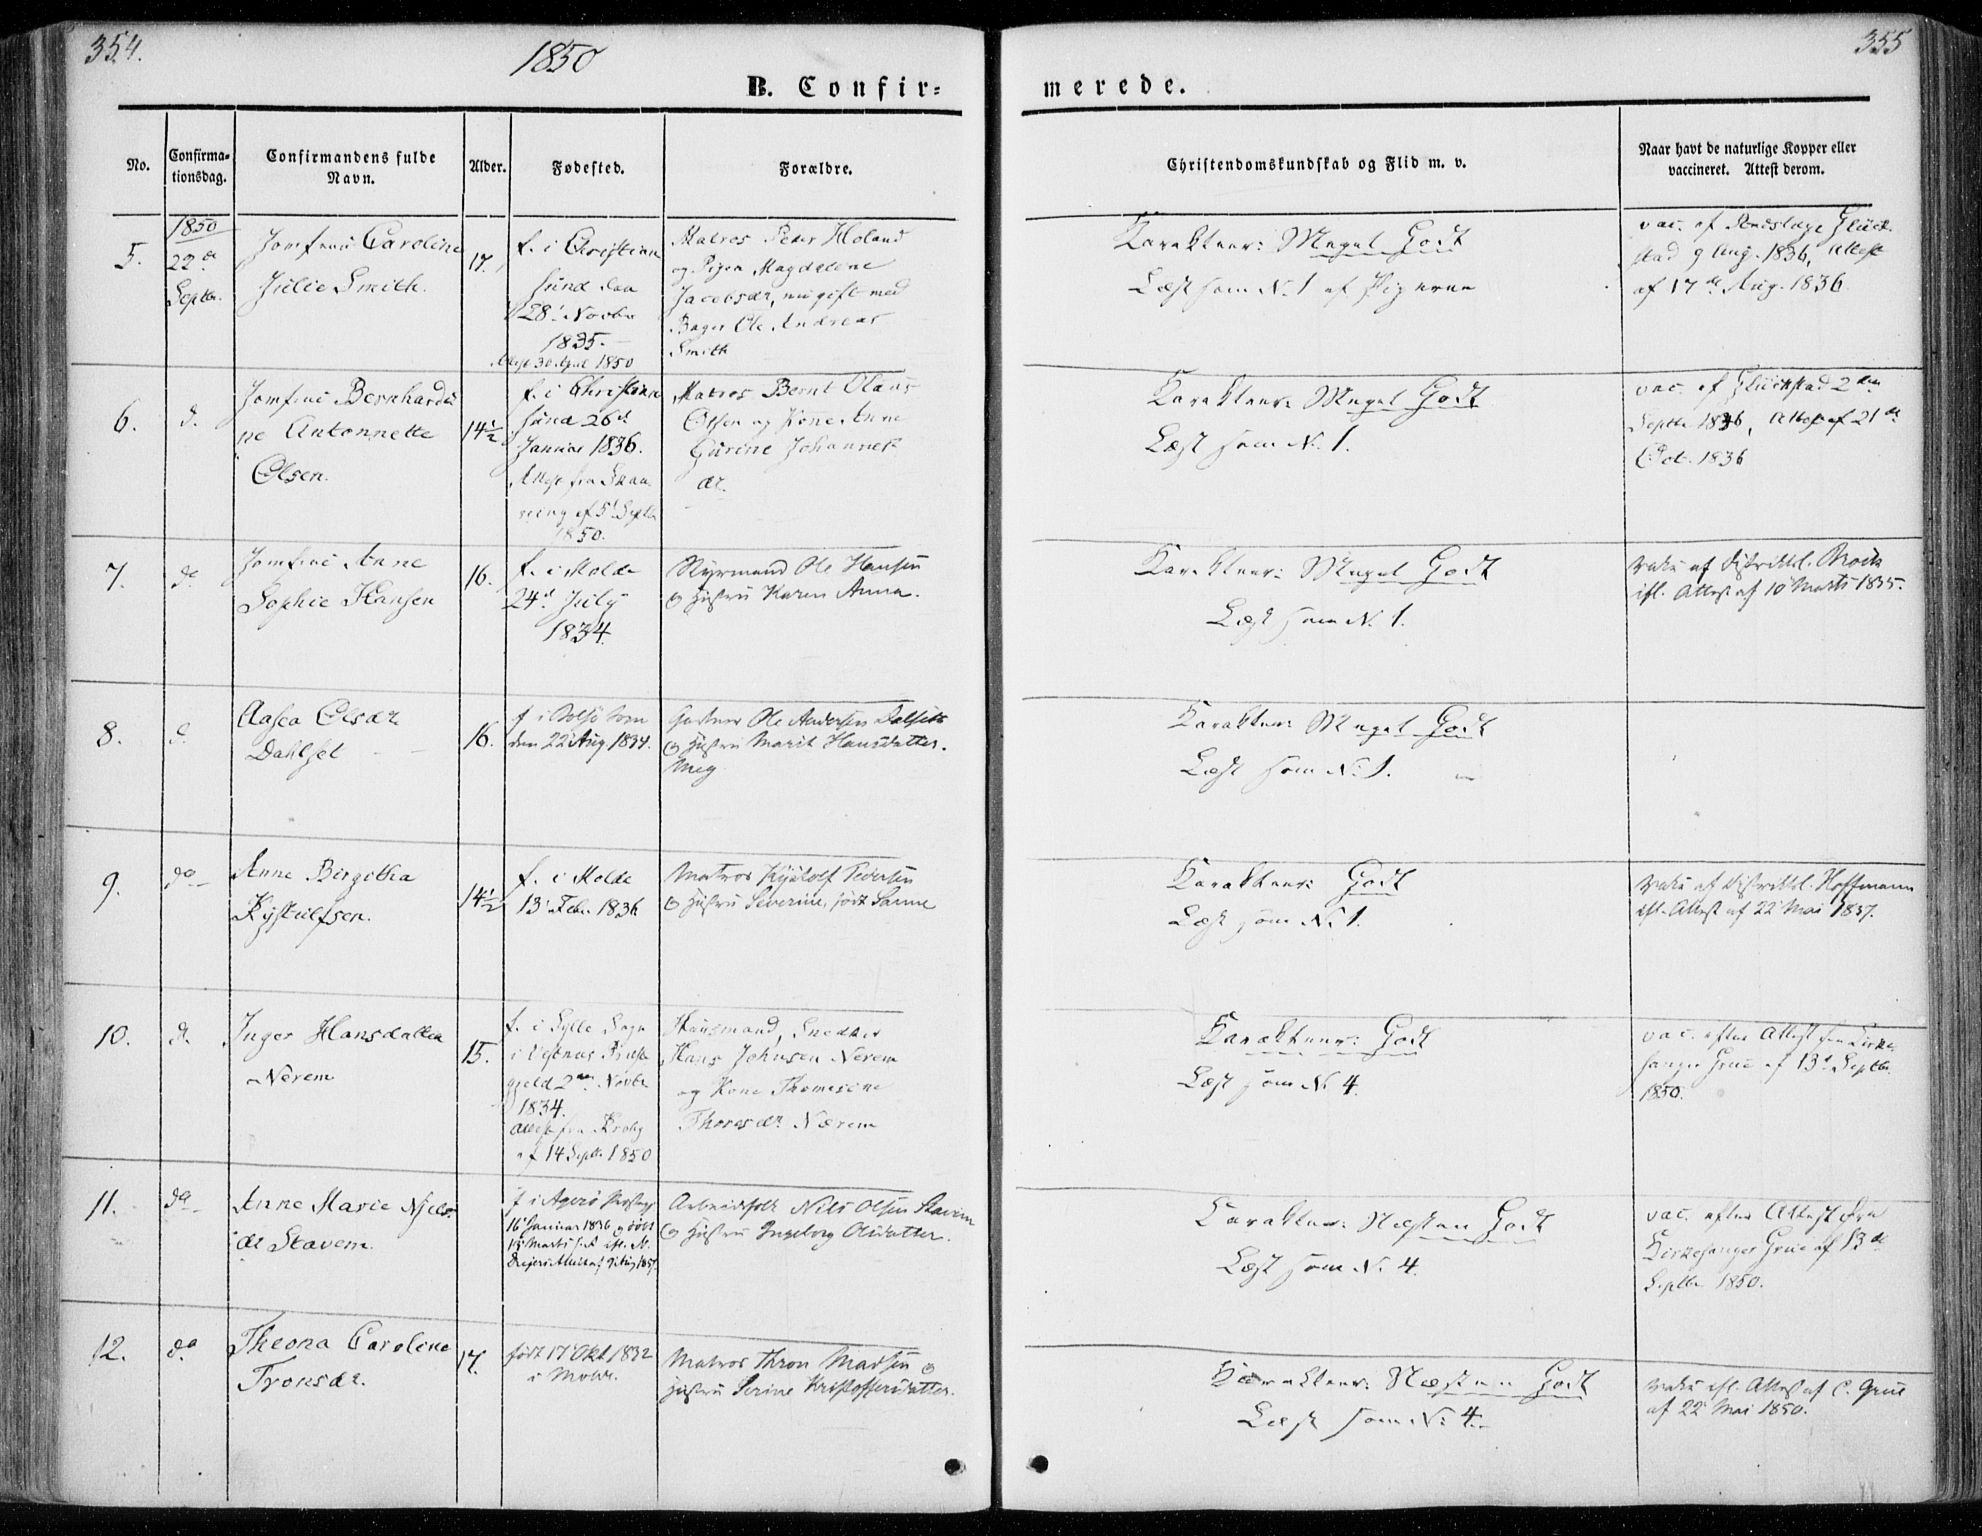 354.
1850
B. Confir=
No.
Confirma-
tionsdag.
Confirmandens fulde
Navn.
Alder.
Fødested.
Forældre.
5.
1850
22de
Septbr.
Jomfrue Caroline
Julie Smith.
17.
f. i Christian
sund den
28' Novbr
1835.
Attest 30 April 1850
Matros Peder Holand
og Pigen Magdalene
Jacobsdr, nu gift med
Bager Ole Andreas
Smith
6.
d.
Jomfrue Bernhardi
ne Antonnette
Olsen.
14½
f. i Christian
sund 26de
Januar 1836.
Attest fra
af 5' Septbr
1850.
Matros Bernt Olaus
Olsen og Kone Anne
Gurine Johannes
dr.
7.
do
Jomfrue Anne
Sophie Hansen
16.
f. i Molde
24d. July
1834.
Styrmand Ole Hansen
og Hustru Karen Anna.
8.
d.
Aasea Olsdr
Dahlset
16.
f i Bolsø Sogn
den 22' Aug 1834.
Gartner Ole Andersen Dalseth
og Hustru Marit Hansdatter.
Meg
9.
do
Anne Birgitha
Kjstulfsen.
14½
f. i Molde
13' Febr. 1836
Matros Kjøstolf Pedersen
og Hustru Severine, født Sanne
10.
d.
Inger Hansdatter
Nerem
15.
f. i Sylte Sogn
i Vestnæs Præste
gjeld 2den Novbr
1834.
Attest fra Krohg
af 14 Septb. 1850
Huusmand, Snedker
Hans Johnsen Nerem
og Kone Thomasine
Thoresdr Nærem
11.
do
Anne Marie Njels
dr Stavem.
f i Agerø Præstegj
16 Januar 1836 og døbt
13' Marts s. A. ifl.
Arbeidsfolk Nils Olsen Stavem
og Hustru Ingeborg Olsdatter.
12.
do
Theona Caroline
Tronsdr.
17.
født 17' Okt 1832
i Molde.
Matros Thron Madsen og
Hustru Serine Kristoffersdatter.
355
merede.
Christendomskundskab og Flid m. v.
Naar havt de naturlige Kopper eller
vaccineret. Attest derom.
Karakteer: Meget Godt
Læst som No. 1 af Pigerne
vac. af Glück-
stad 9 Aug. 1836, Attest
af 17de Aug. 1836
Karakteer: Meget Godt
Læst som No. 1.
vac. af Glückstad 2den
Septbr 1836, Attest af 21de
Oct. 1836
Karakteer: Meget Godt
Læst som No. 1.
Vakc af Distriktsl.
ifl. Attest af 10 Marts 1835.
Karakteer: Meget Godt
Læst som No. 1.
Karakteer: Godt
Læst som No. 1.
Vakc af Distriktsl. Hoffmann
ifl. Attest af 22 Mai 1837.
Karakteer: Godt
Læst som No. 4.
vac. efter Attest fra Kirke-
sanger Grue af 13d Septbr.
1850.
Karakteer: Næsten Godt
Læst som No. 4.
vac. efter Attest fra
Kirkesanger Grue af 13de
Septbr 1850.
Karakteer: Næsten Godt
Læst som No. 4.
Vakc ifl. Attest af C. Grue
af 22 Mai 1850.